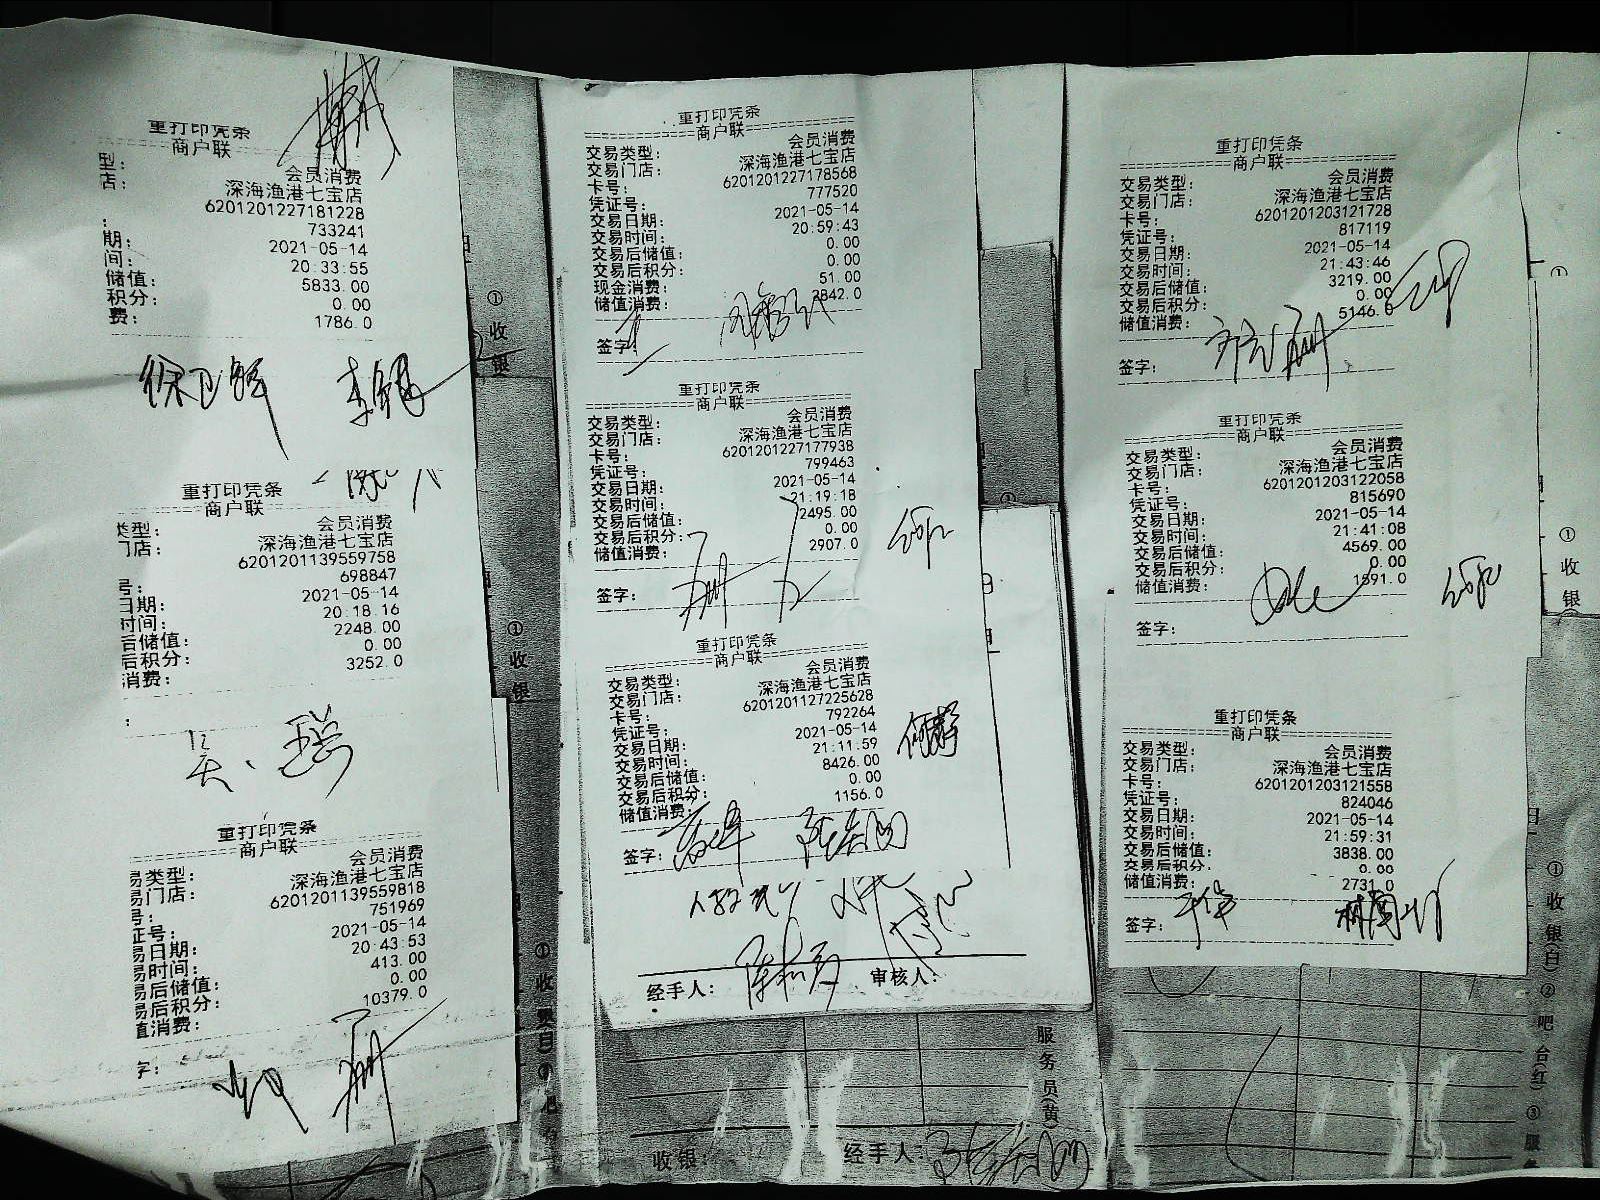 重打印凭条
商户联
型： 会员消费
店： 深海渔港七宝店
： 6201201227181228
733241
期： 2021-05-14
间： 20:33:55
储值： 5833.00
积分： 0.00
费： 1786.0
徐卫
重打印凭条
商户联
类型： 会员消费
门店： 深海渔港七宝店
6201201139559758
号： 698847
日期： 2021-05-14
时间： 20:18.16
后储值： 2248.00
后积分： 0.00
消费： 3252.0
：
重打印凭条
商户联
易类型： 会员消费
易门店： 深海渔港七宝店
号： 6201201139559818
证号： 751969
易日期： 2021-05-14
易时间： 20:43:53
易后储值： 413.00
易后积分： 0.00
值消费： 10379.0
字：
① 收 银
① 收 银
重打印凭条
商户联
交易类型： 会员消费
交易门店： 深海渔港七宝店
卡号： 6201201227178568
凭证号： 777520
交易日期： 2021-05-14
交易时间： 20:59:43
交易后储值： 0.00
交易后积分： 0.00
现金消费： 51.00
储值消费： 2842.0
签字：
重打印凭条
商户联
交易类型： 会员消费
交易门店： 深海渔港七宝店
卡号： 6201201227177938
凭证号： 799463
交易日期： 2021-05-14
交易时间： 21:19:18
交易后储值： 2495.00
交易后积分： 0.00
储值消费： 2907.0
签字：
重打印凭条
商户联
交易类型： 会员消费
交易门店： 深海渔港七宝店
卡号： 6201201127225628
凭证号： 792264
交易日期： 2021-05-14
交易时间： 21:11:59
交易后储值： 8426.00
交易后积分： 0.00
储值消费： 1156.0
签字：
经手人： 审核人：
服务员(黄)
收银： 经手人：
重打印凭条
商户联
交易类型： 会员消费
交易门店： 深海渔港七宝店
卡号： 6201201203121728
凭证号： 817119
交易日期： 2021-05-14
交易时间： 21:43:46
交易后储值： 3219.00
交易后积分： 0.00
储值消费： 5146.0
签字：
重打印凭条
商户联
交易类型： 会员消费
交易门店： 深海渔港七宝店
卡号： 6201201203122058
凭证号： 815690
交易日期： 2021-05-14
交易时间： 21:41:08
交易后储值： 4569.00
交易后积分： 0.00
储值消费： 1591.0
签字：
重打印凭条
商户联
交易类型： 会员消费
交易门店： 深海渔港七宝店
卡号： 6201201203121558
凭证号： 824046
交易日期： 2021-05-14
交易时间： 21:59:31
交易后储值： 3838.00
交易后积分： 0.00
储值消费： 2731.0
签字：
① 收 银
① 收 银(白) ② 吧 台(红) ③ 服